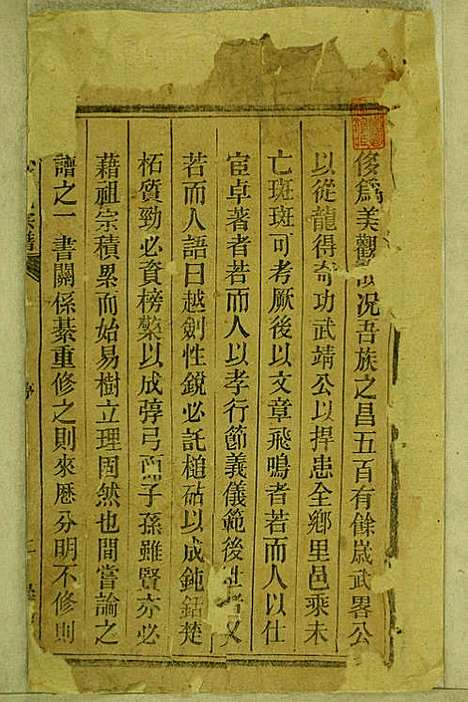 俊為美觀況吾族之昌五百有餘歲武畧公
以從龍得奇功武靖公以捍患全鄉里邑乘未
亡斑斑可考厥後以文章飛鳴者若而人以仕
宦卓著者若而人以孝行節義儀範後世者又
若而人語曰越劍性銳必託槌砧以成鈍鈷楚
柘質勁必資榜檠以成弴弓而子孫雖賢亦必
藉祖宗積累而始易樹立理固然也間嘗論之
譜之一書關係綦重修之則來歷分明不修則